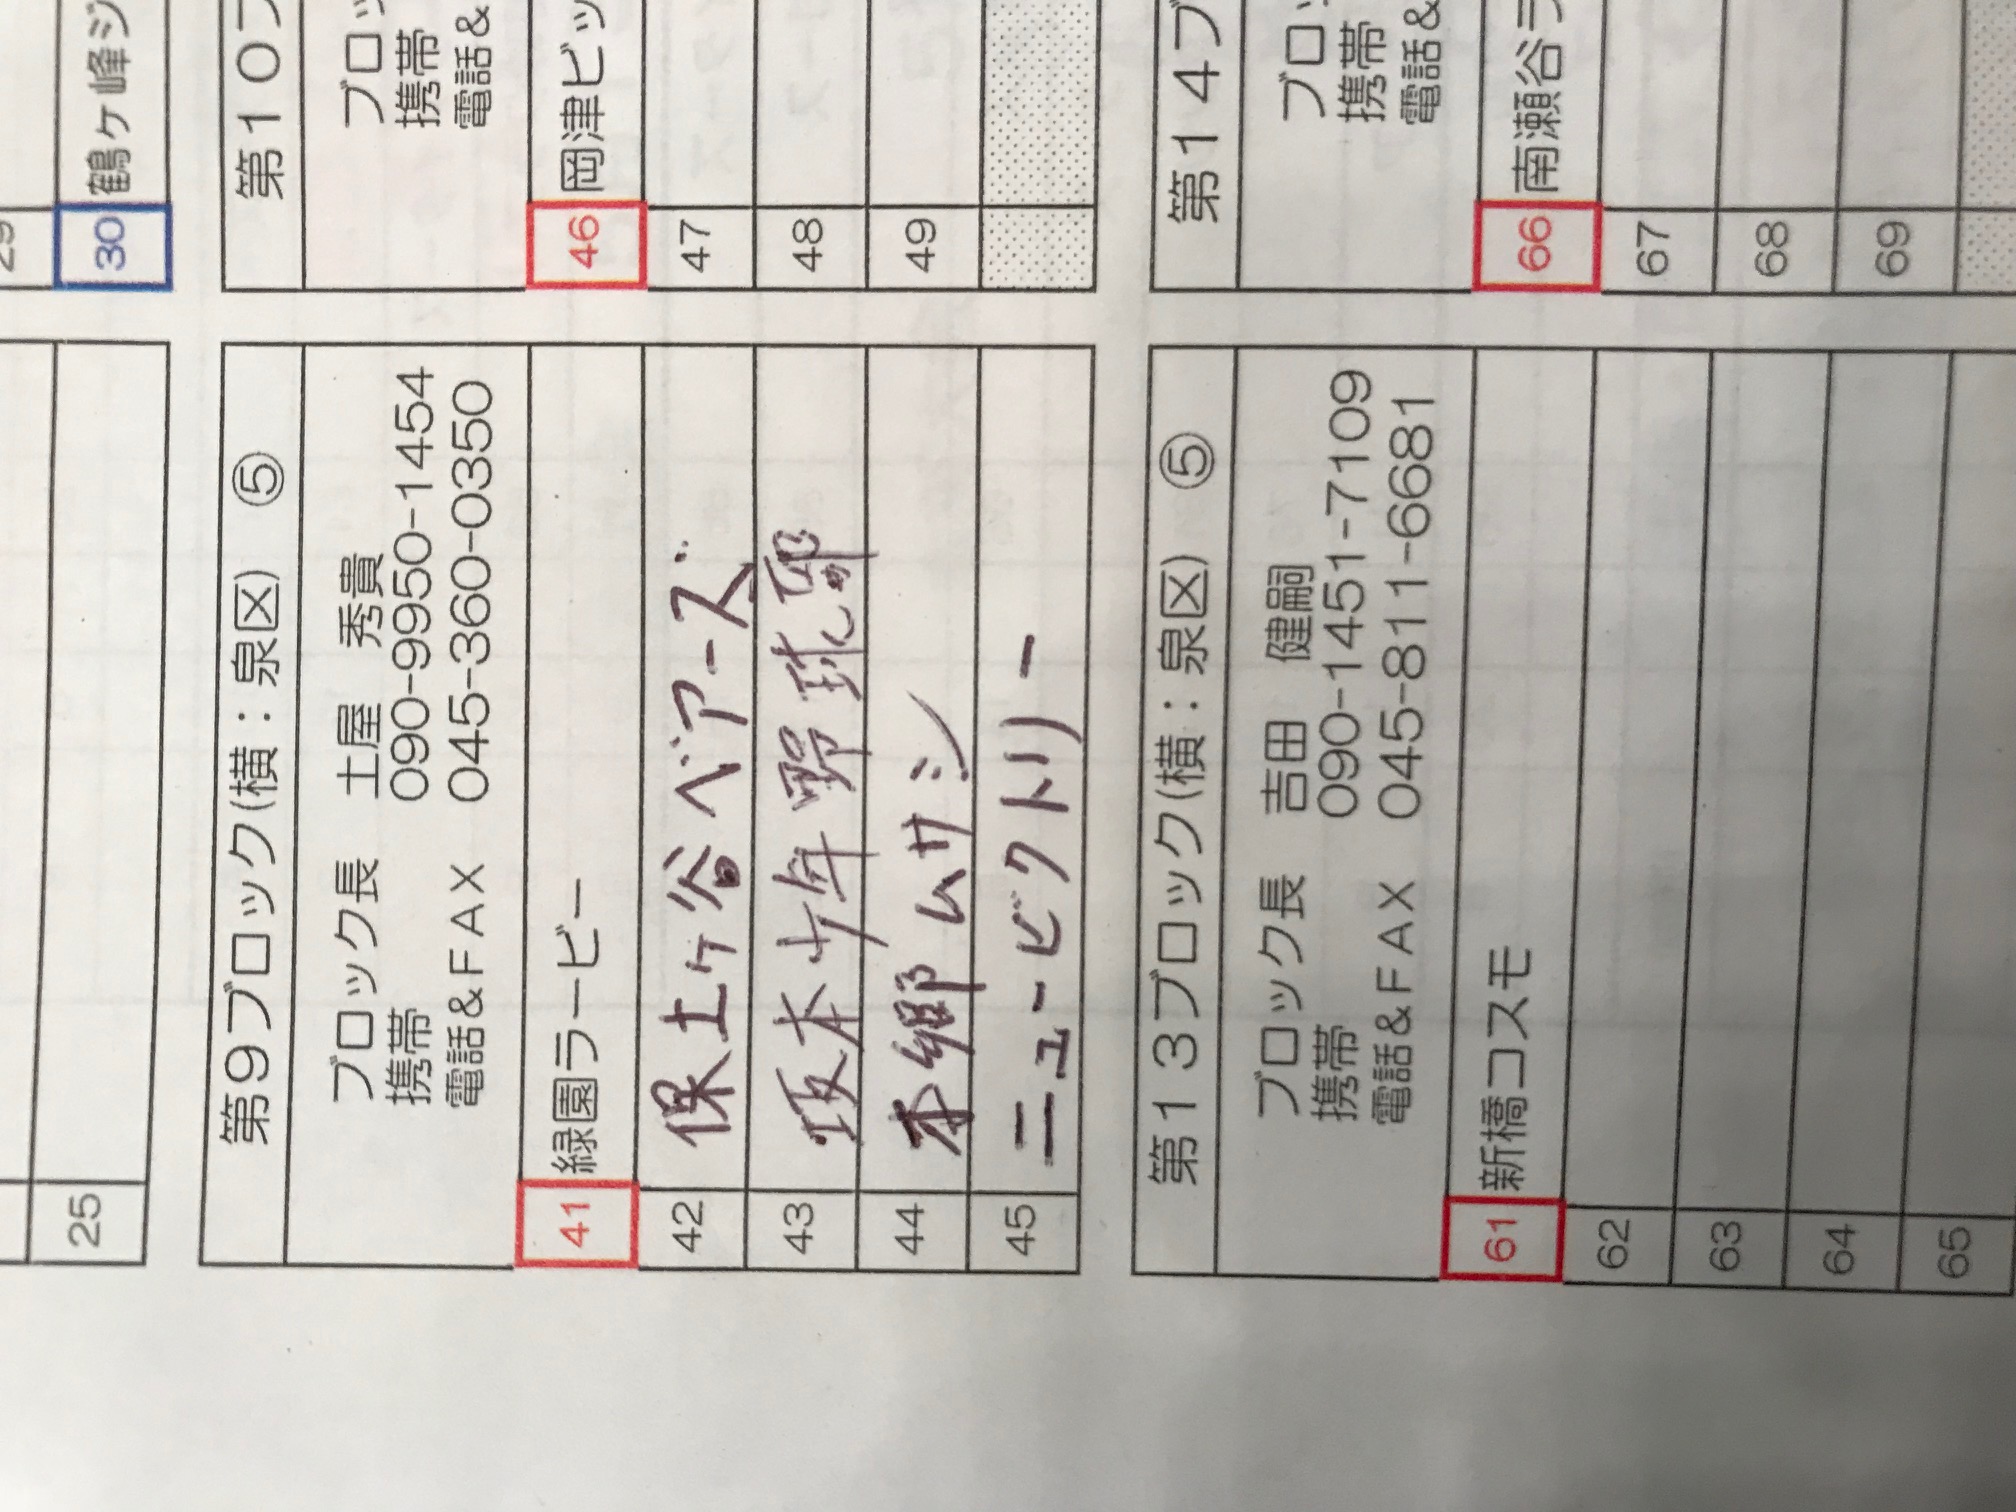 25
29
30 鶴ケ峰ジ
第9ブロック(横：泉区) ⑤
ブロック長 土屋 秀貴
携帯 090-9950-1454
電話&FAX 045-360-0350
41 緑園ラービー
42 保土ヶ谷ベアーズ
43 坂本少年野球部
44 本郷ムサシ
45 ニュービクトリー
第10ブ
ブロッ
携帯
電話&
46 岡津ビッ
47
48
49
第13ブロック(横：泉区) ⑤
ブロック長 吉田 健嗣
携帯 090-1451-7109
電話&FAX 045-811-6681
61 新橋コスモ
62
63
64
65
第14ブ
ブロッ
携帯
電話&
66 南瀬谷ラ
67
68
69